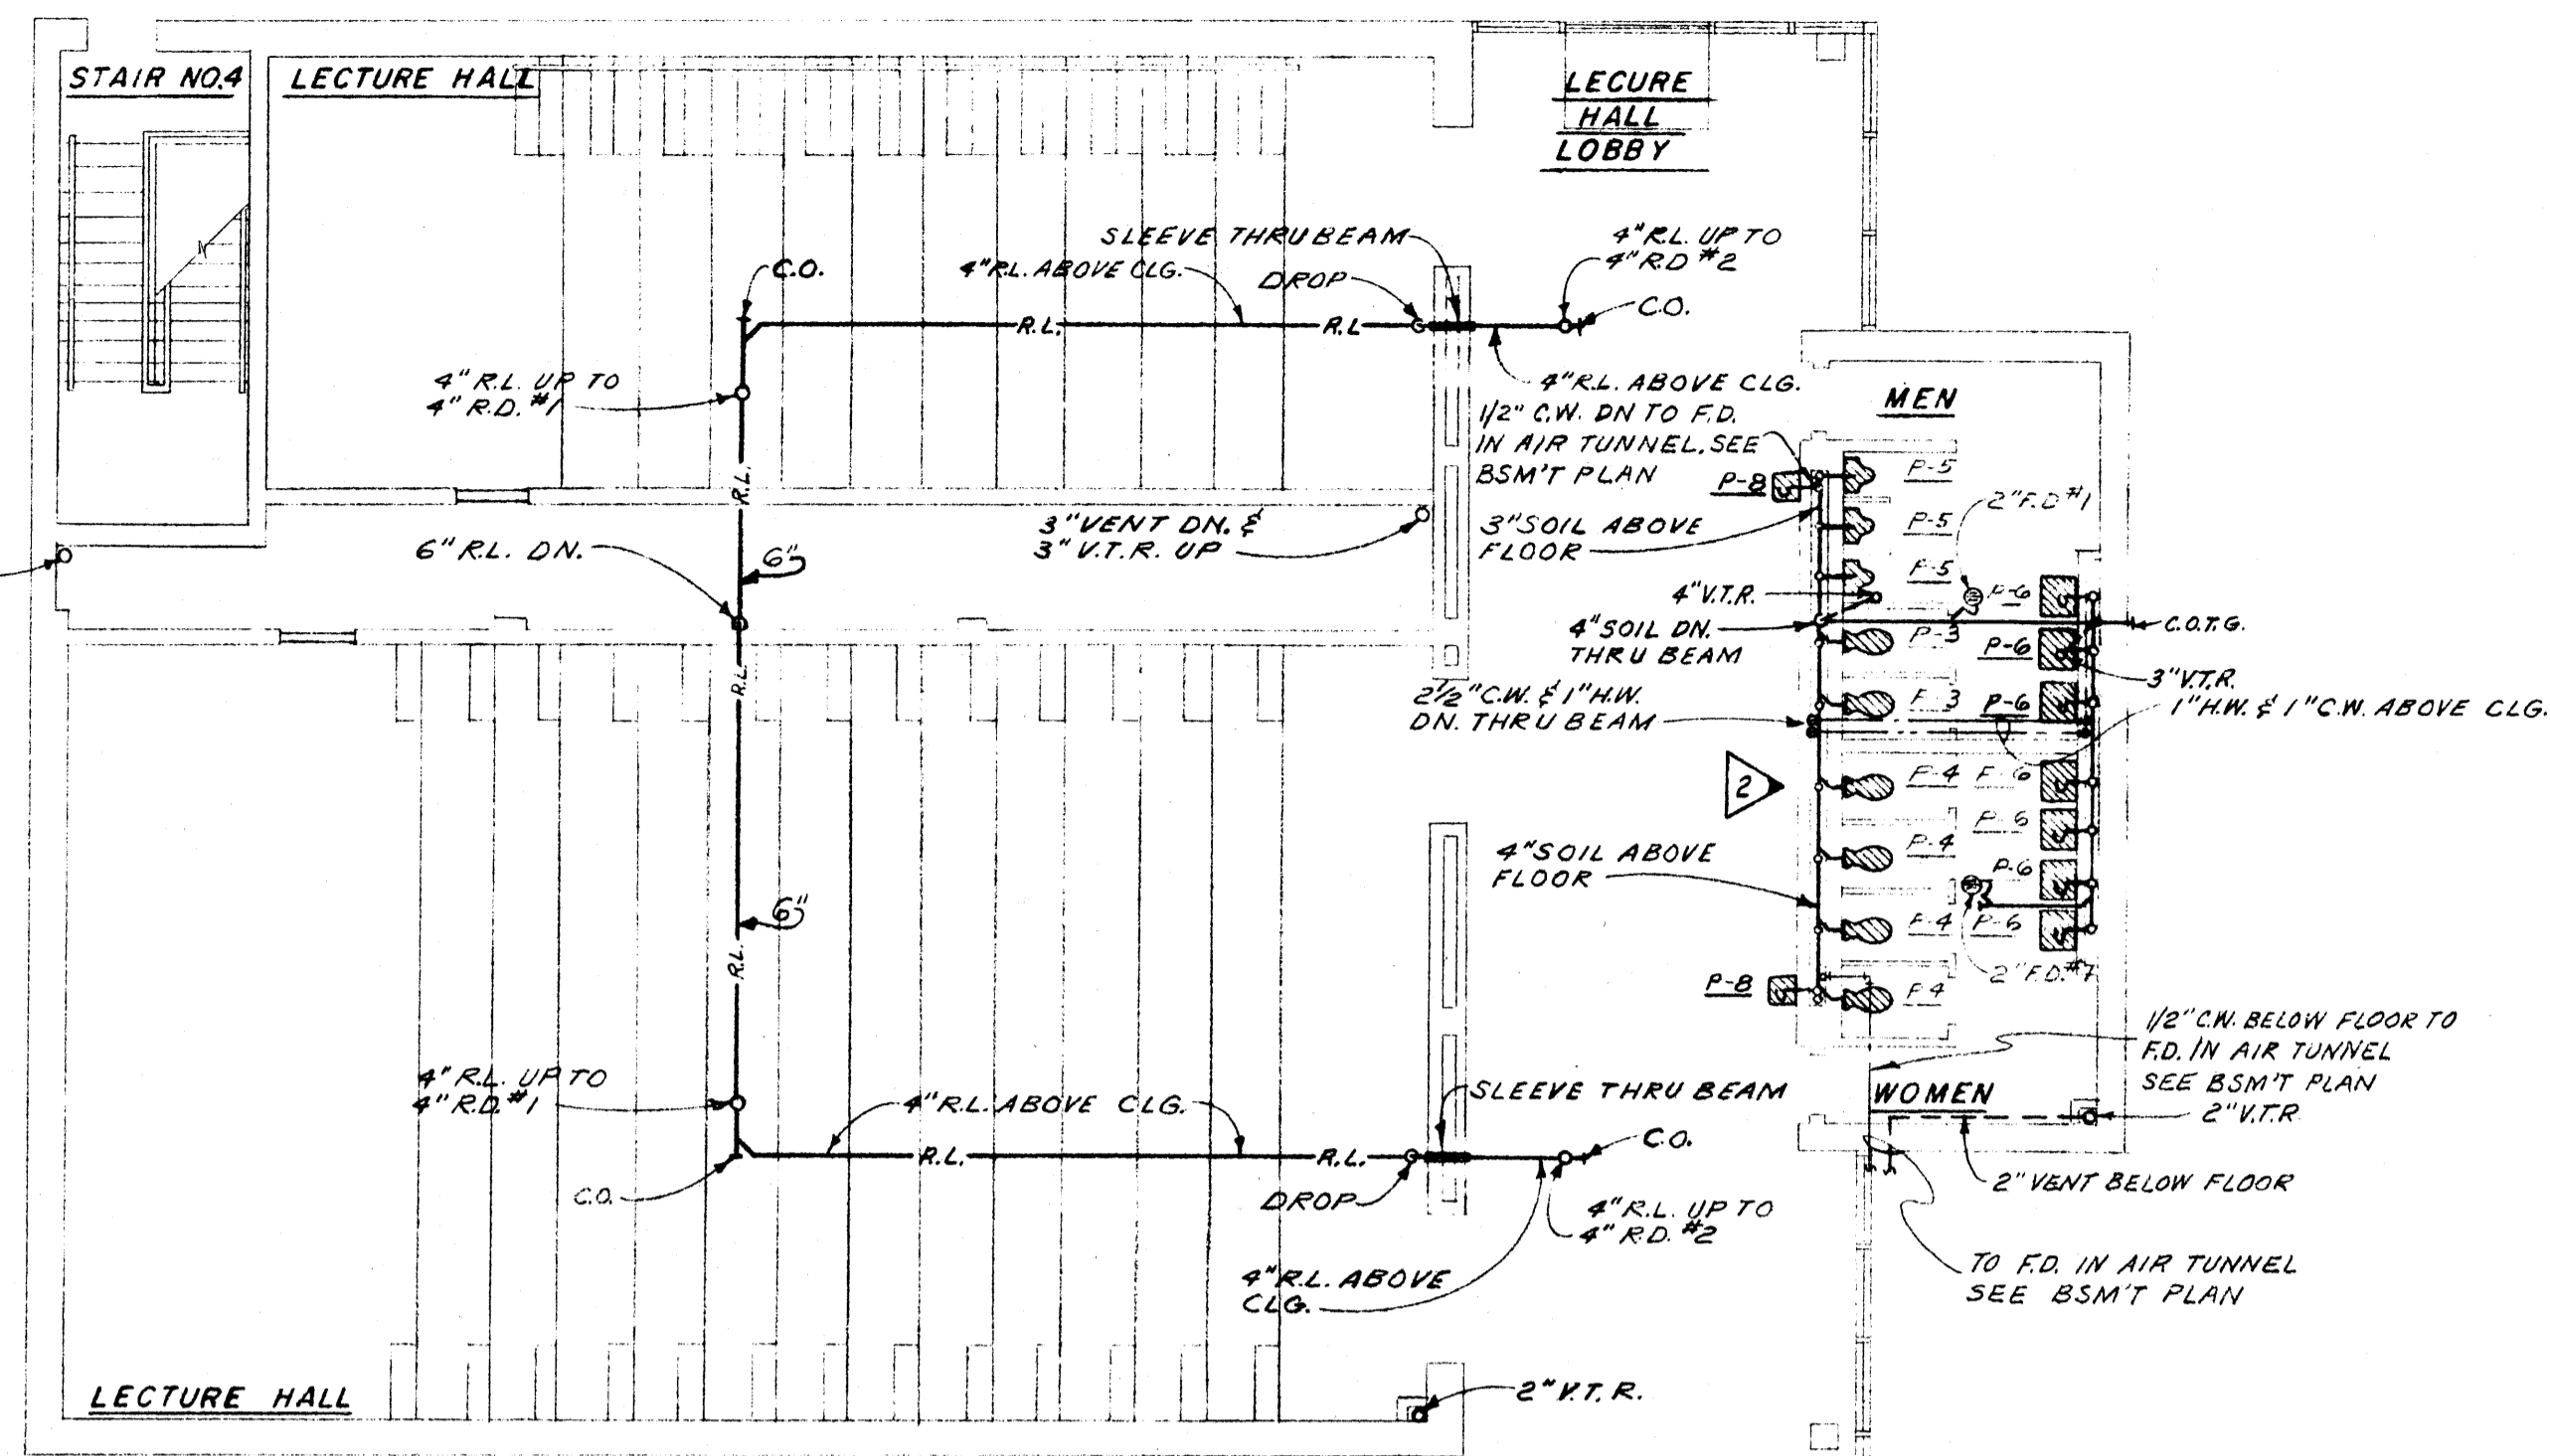 STAIR NO.4
LECTURE HALL
LECURE
HALL
LOBBY
SLEEVE THRU BEAM
4" R.L. ABOVE CLG.
DROP
4" R.L. UP TO
4" R.D #2
C.O.
C.O.
R.L.
R.L
4" R.L. UP TO
4" R.D. #1
4" R.L. ABOVE CLG.
1/2" C.W. DN TO F.D.
IN AIR TUNNEL. SEE
BSM'T PLAN
MEN
P-8
P-5
P-5
P-5
2" F.D #1
R.L.
3" VENT DN. &
3" V.T.R. UP
3" SOIL ABOVE
FLOOR
6" R.L. DN.
6"
4" V.T.R.
P-6
4" SOIL DN.
THRU BEAM
P-3
P-6
C.O.T.G.
R.L.
2 1/2" C.W. & 1" H.W.
DN. THRU BEAM
P-3
P-6
3" V.T.R.
1" H.W. & 1" C.W. ABOVE CLG.
2
P-4
P-6
P-4
P-6
4" SOIL ABOVE
FLOOR
P-6
6"
P-4
P-6
R.L.
2" F.D. #1
P-8
P-4
1/2" C.W. BELOW FLOOR TO
F.D. IN AIR TUNNEL
SEE BSM'T PLAN
4" R.L. UP TO
4" R.D. #1
4" R.L. ABOVE CLG.
SLEEVE THRU BEAM
WOMEN
2" V.T.R
C.O.
R.L.
R.L.
C.O.
DROP
4" R.L. UP TO
4" R.D. #2
2" VENT BELOW FLOOR
4" R.L. ABOVE
CLG.
TO F.D. IN AIR TUNNEL
SEE BSM'T PLAN
LECTURE HALL
2" V.T.R.